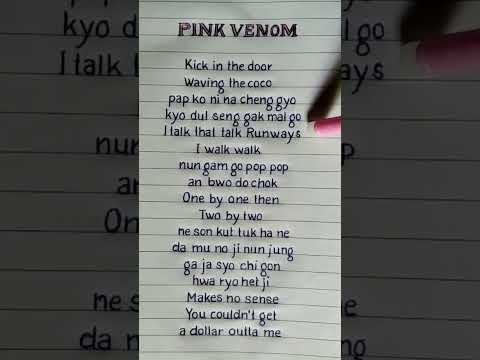 PINK VENOM
Kick in the door
Waving the coco
pap ko ni na cheng gyo
kyo dul seng gak mal go
I talk that talk Runways
I walk walk
nun gam go pop pop
an bwo do chok
One by one then
Two by two
ne son kut tuk ha ne
da mu no ji nun jung
ga ja syo chi gon
hwa ryo het ji
Makes no sense
You couldn't get
a dollar outta me